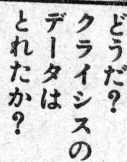 どうだ？
クライシスの
データは
とれたか？